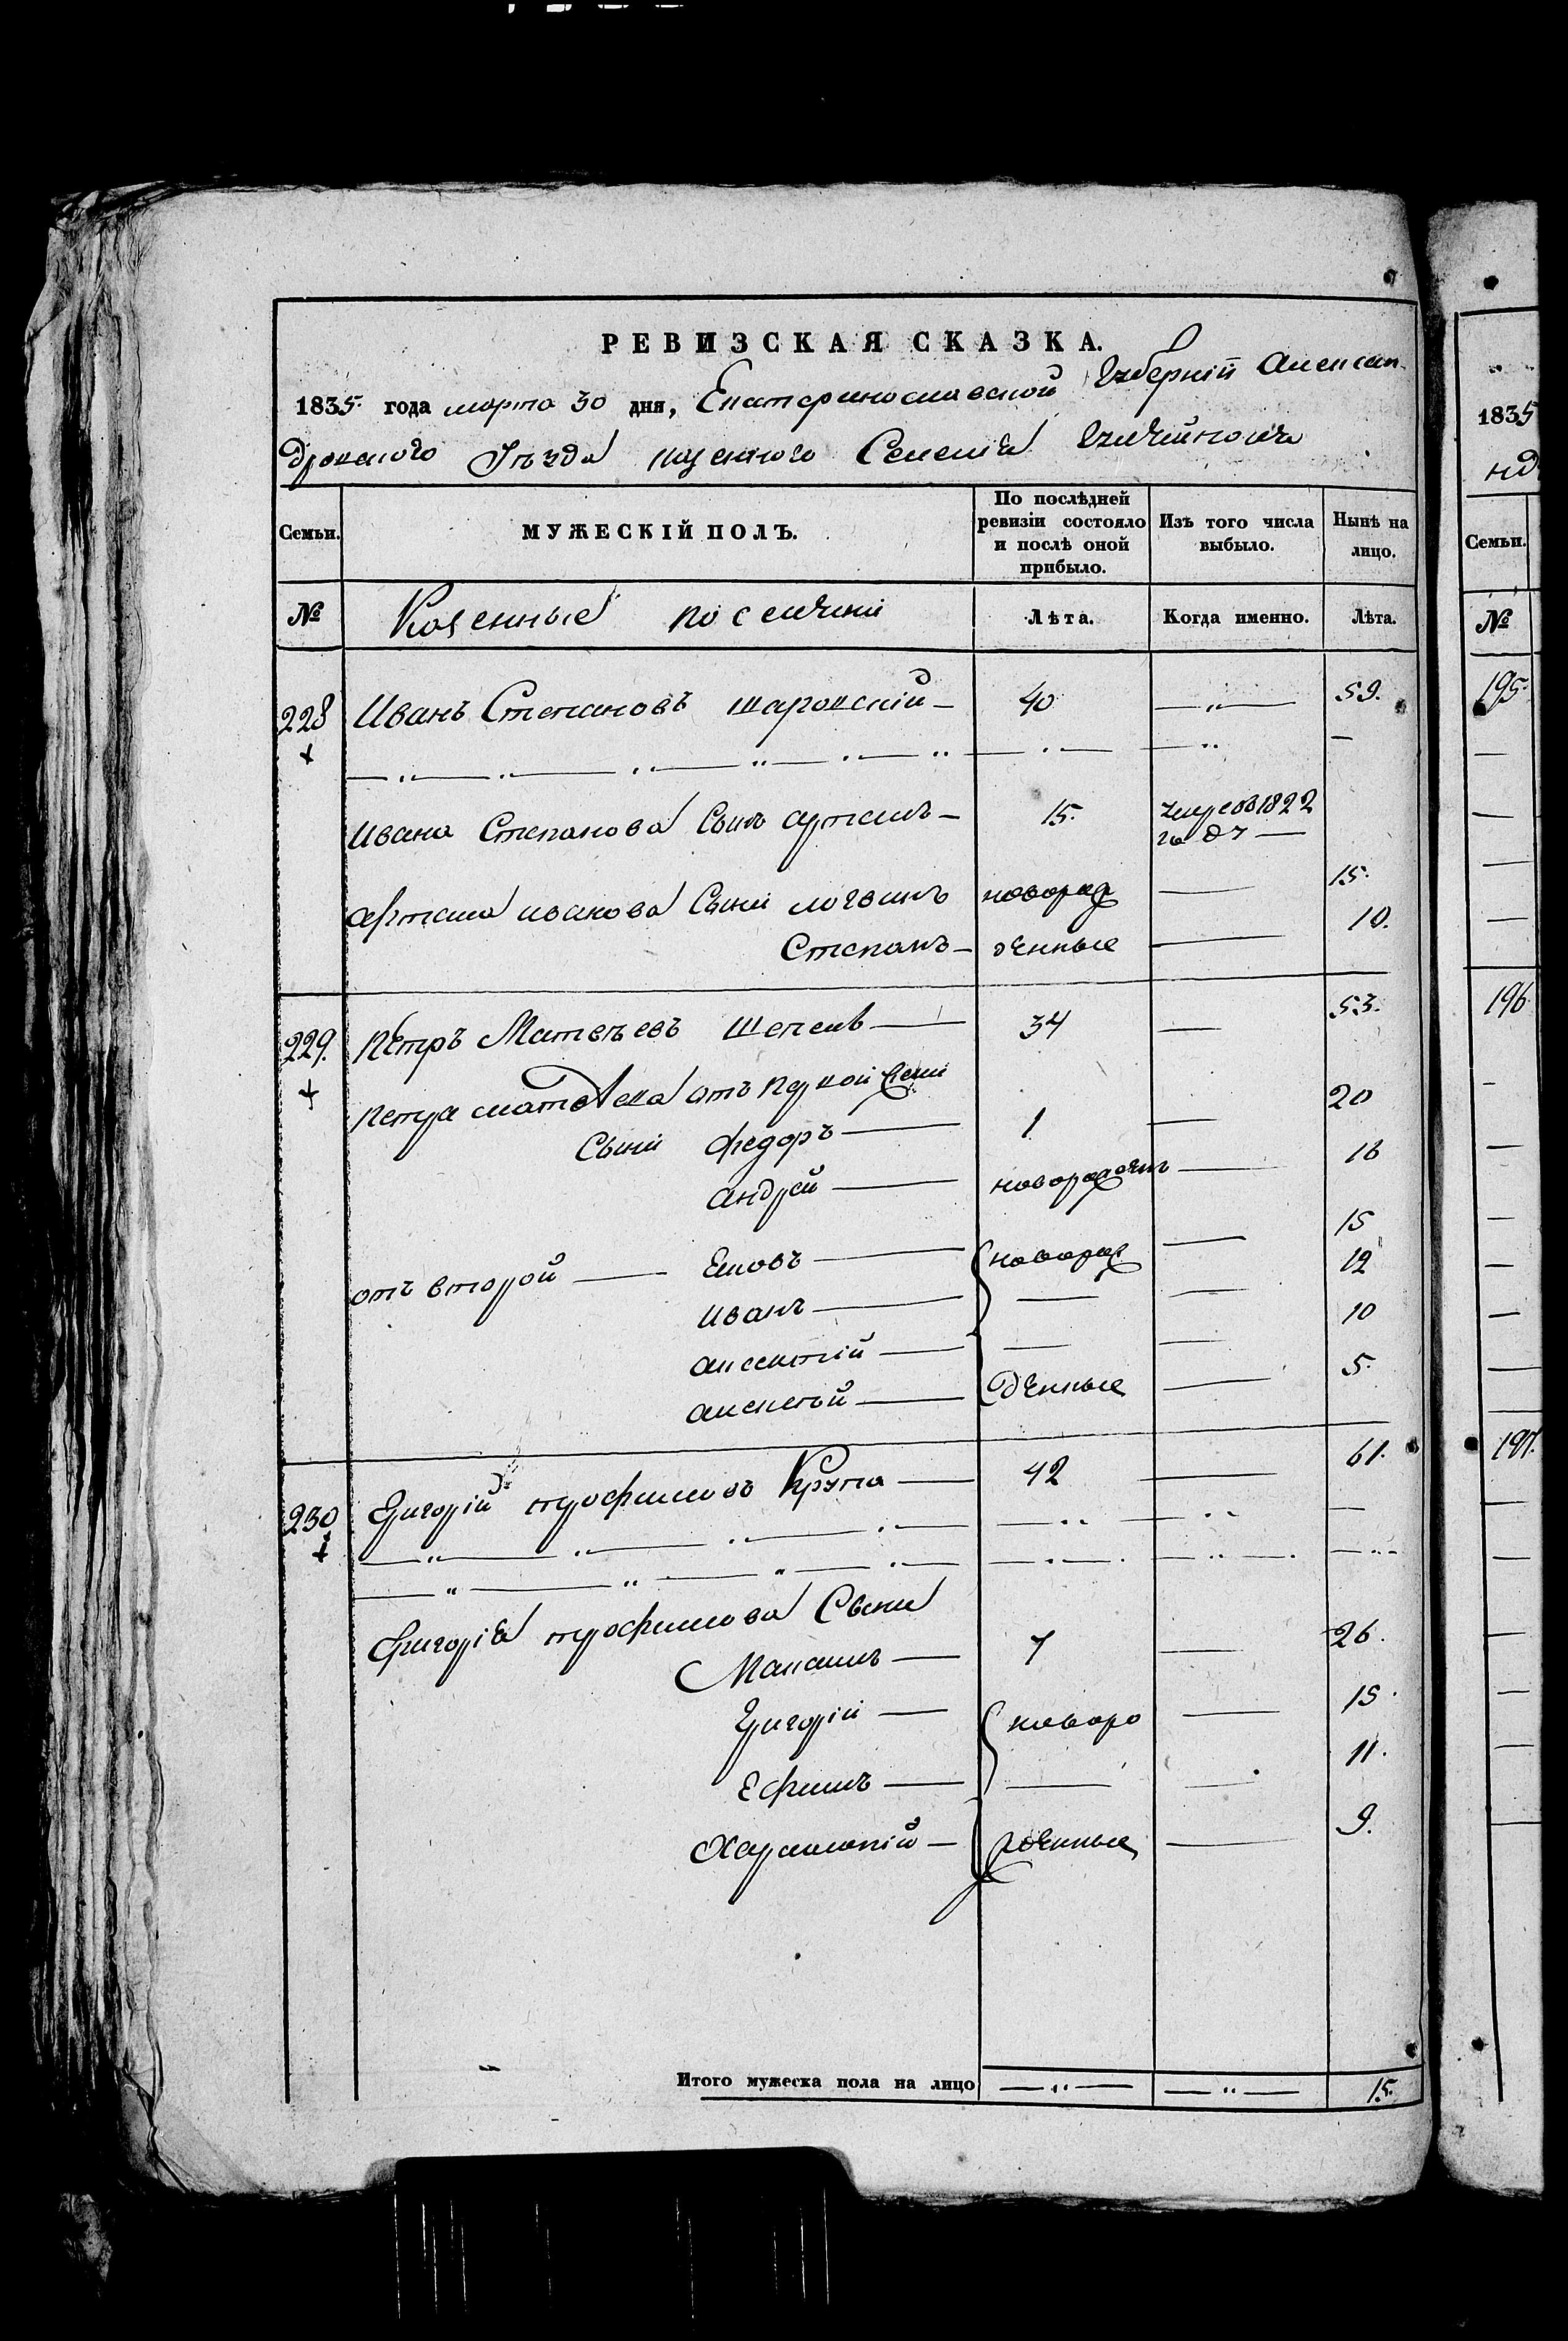 РЕВИЗСКАЯ СКАЗКА.
1835 года марта 30 дня, Екатеринославской Губерніи Александ
дровского Уезда казенного Селенія Гуляйполя
Семьи.
МУЖЕСКІЙ ПОЛЪ.
По послѣдней ревизіи состояло и послѣ оной прибыло.
Изъ того числа выбыло.
Нынѣ на лицо.
№ Козенные поселяни Лѣта. Когда именно. Лѣта.
228 Иванъ Степановъ 40 59.
Ивана Степанова Сынъ Артемъ 15. умре въ 1822
году
Артема иванова Сыни логвинъ новораж 15.
Степанъ денные 10.
229. Петръ Матвѣевъ Шепель 34 53.
Петра матвѣева отъ первой жени
Сыни Федоръ 1 20
андрей новорожденъ 16
отъ второй Яковъ новораж 15
иванъ 12
авксентій 10
алексей денные 5.
230 Григорій трофимовъ Крупа 42 61.
Григорія трофимова Сыни
Максимъ 7 26.
Григорій новоро 15.
Ефимъ 11.
Харлампій жденные 9.
Итого мужеска пола на лицо 15.
1835
Семьи.
№
195.
196
197.